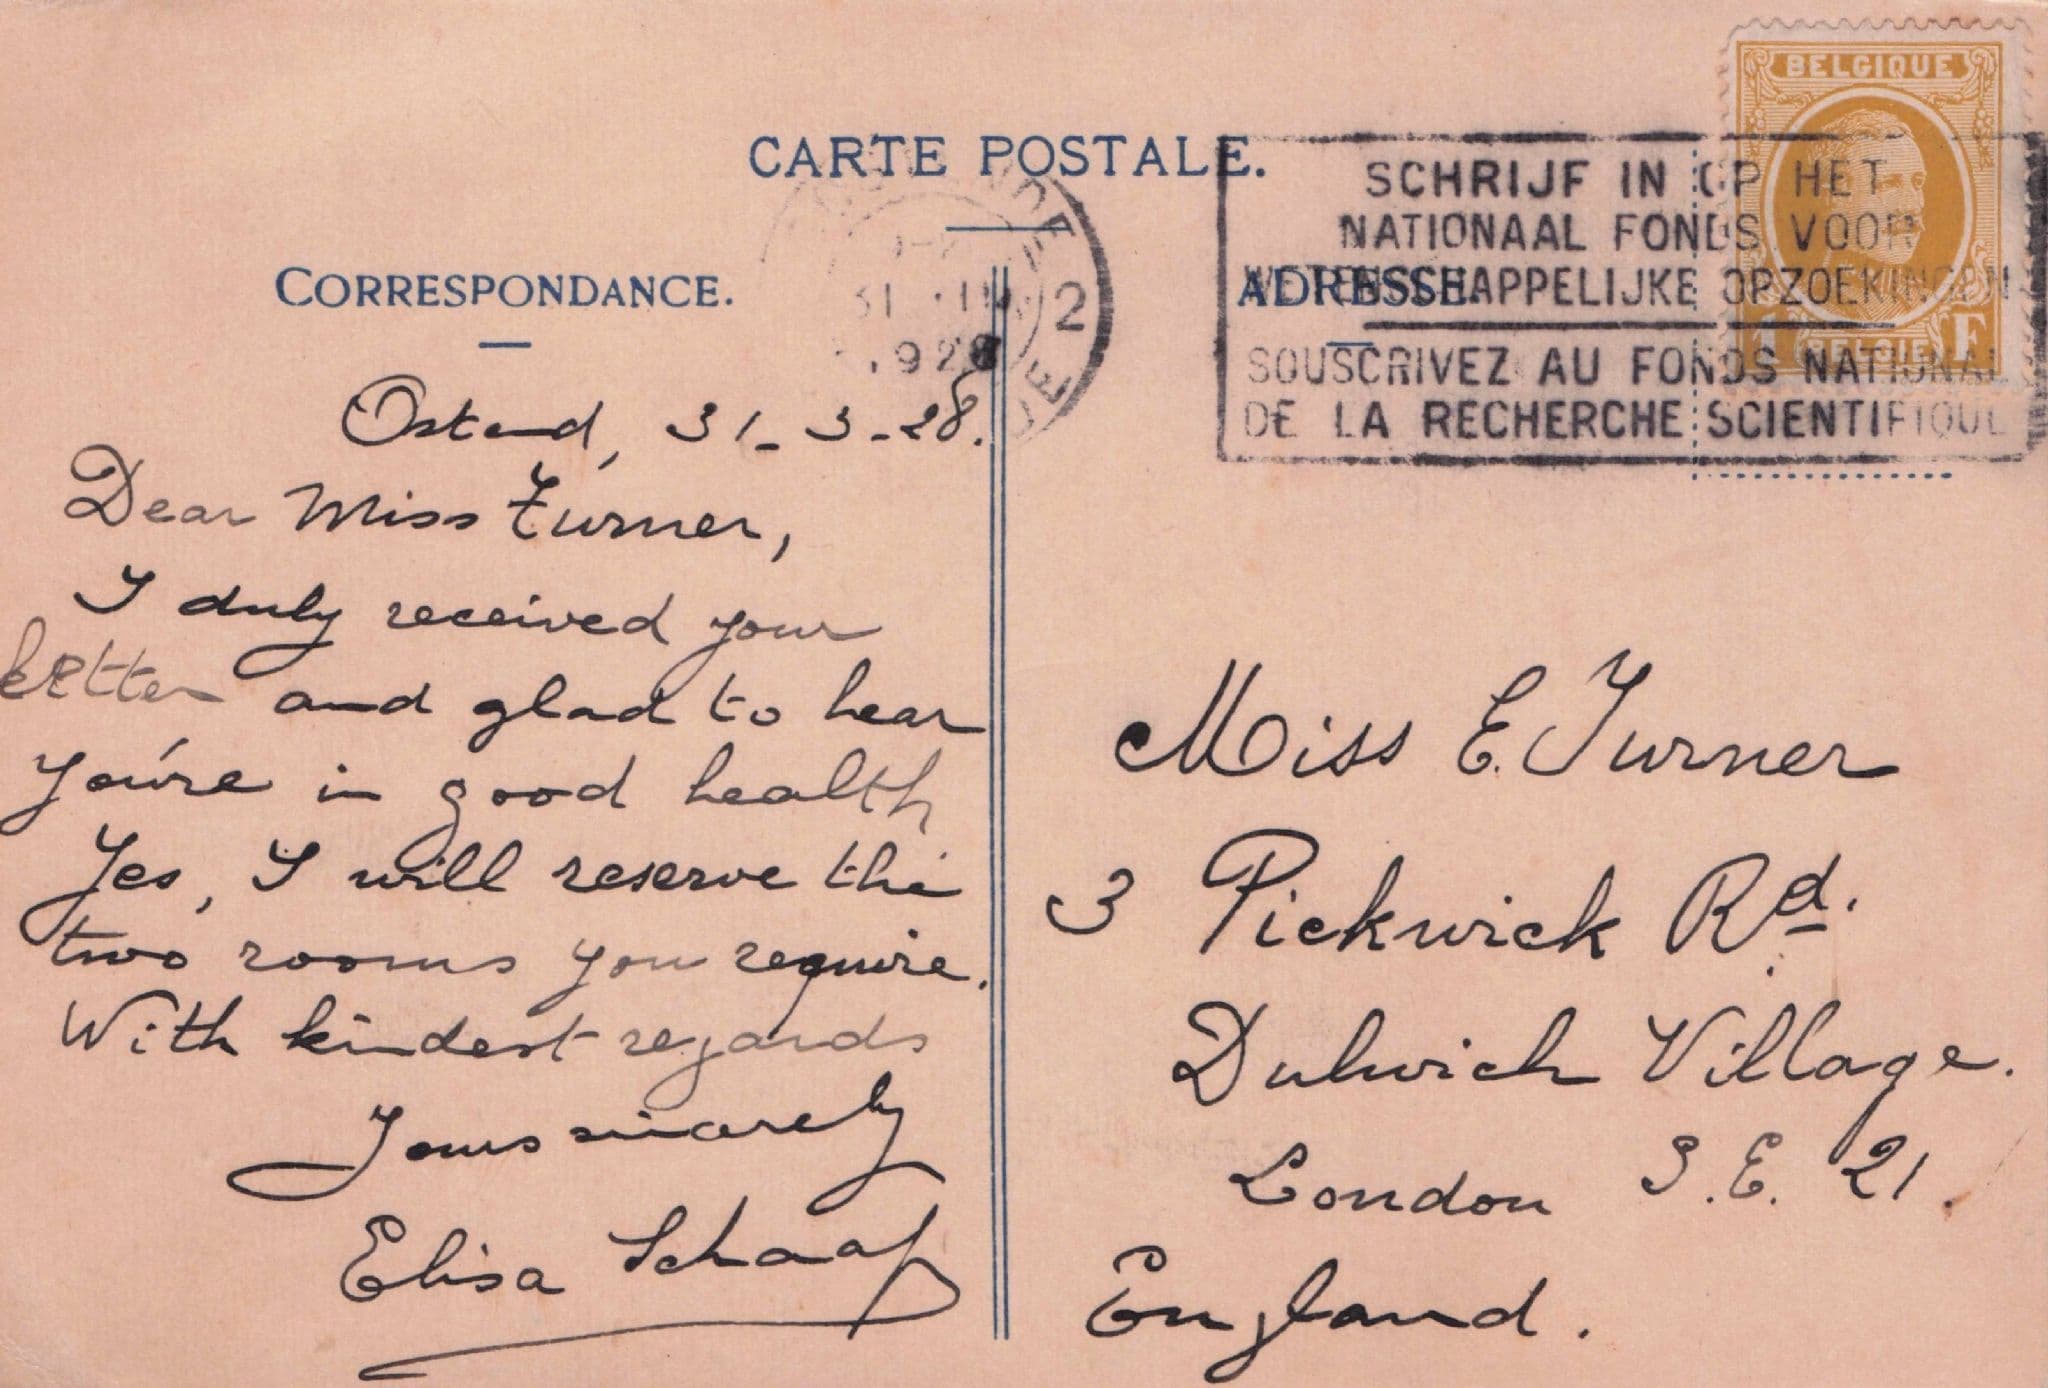 CARTE POSTALE.
CORRESPONDANCE.
ADRESSE.
BELGIQUE
1 F
BELGIË
2
31 III
1928
SCHRIJF IN OP HET
NATIONAAL FONDS VOOR
WETENSCHAPPELIJKE OPZOEKINGEN
SOUSCRIVEZ AU FONDS NATIONAL
DE LA RECHERCHE SCIENTIFIQUE
Ostend, 31-3-28.
Dear Miss Turner,
I duly received your
letter and glad to hear
you're in good health
Yes, I will reserve the
two rooms you require.
With kindest regards
Yours sincerely
Elisa Schaap
Miss E. Turner
3 Pickwick Rd.
Dulwich Village.
London S.E. 21.
England.